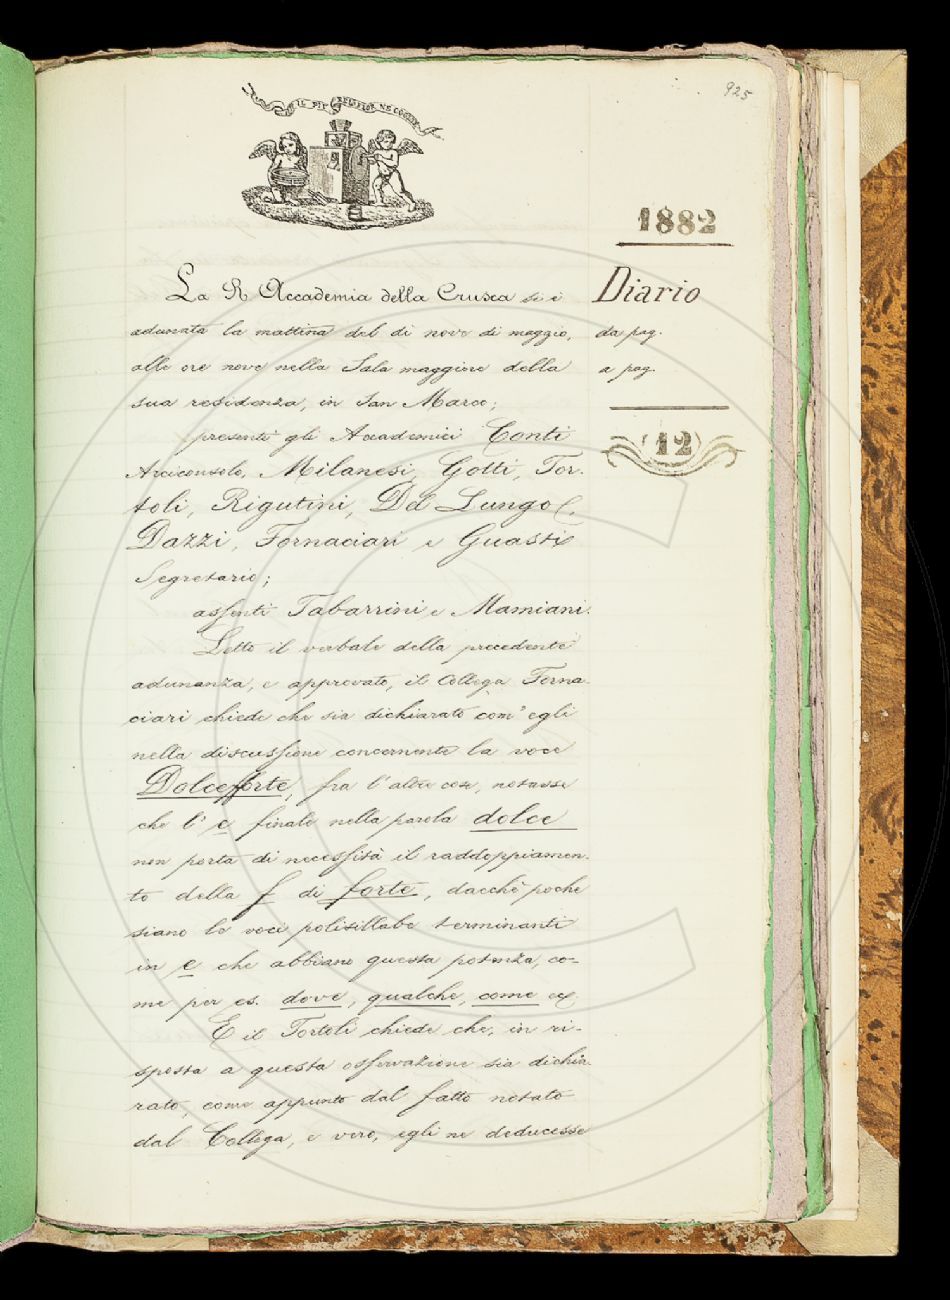 925
IL PIÙ BEL FIOR NE COGLIE
1882
Diario
da pag.
a pag.
(12)
La R. Accademia della Crusca si è
adunata la mattina del dì nove di maggio,
alle ore nove nella Sala maggiore della
sua residenza, in San Marco;
presenti gli Accademici Conti
Arciconsolo, Milanesi, Gotti, Tor-
toli, Rigutini, Del Lungo,
Dazzi, Fornaciari e Guasti
Segretario;
assenti Tabarrini e Mamiani.
Letto il verbale della precedente
adunanza, e approvato, il Collega Forna-
ciari chiede che sia dichiarato com'egli
nella discussione concernente la voce
Dolceforte, fra l'altre cose, notasse
che l'e finale nella parola dolce
non porta di necessità il raddoppiamen-
to della f di forte, dacchè poche
siano le voci polisillabe terminanti
in e che abbiano questa potenza, co-
me per es. dove, qualche, come ec.
E il Tortoli chiede che, in ri-
sposta a questa osservazione sia dichia-
rato, come appunto dal fatto notato
dal Collega, e vero, egli ne deducesse